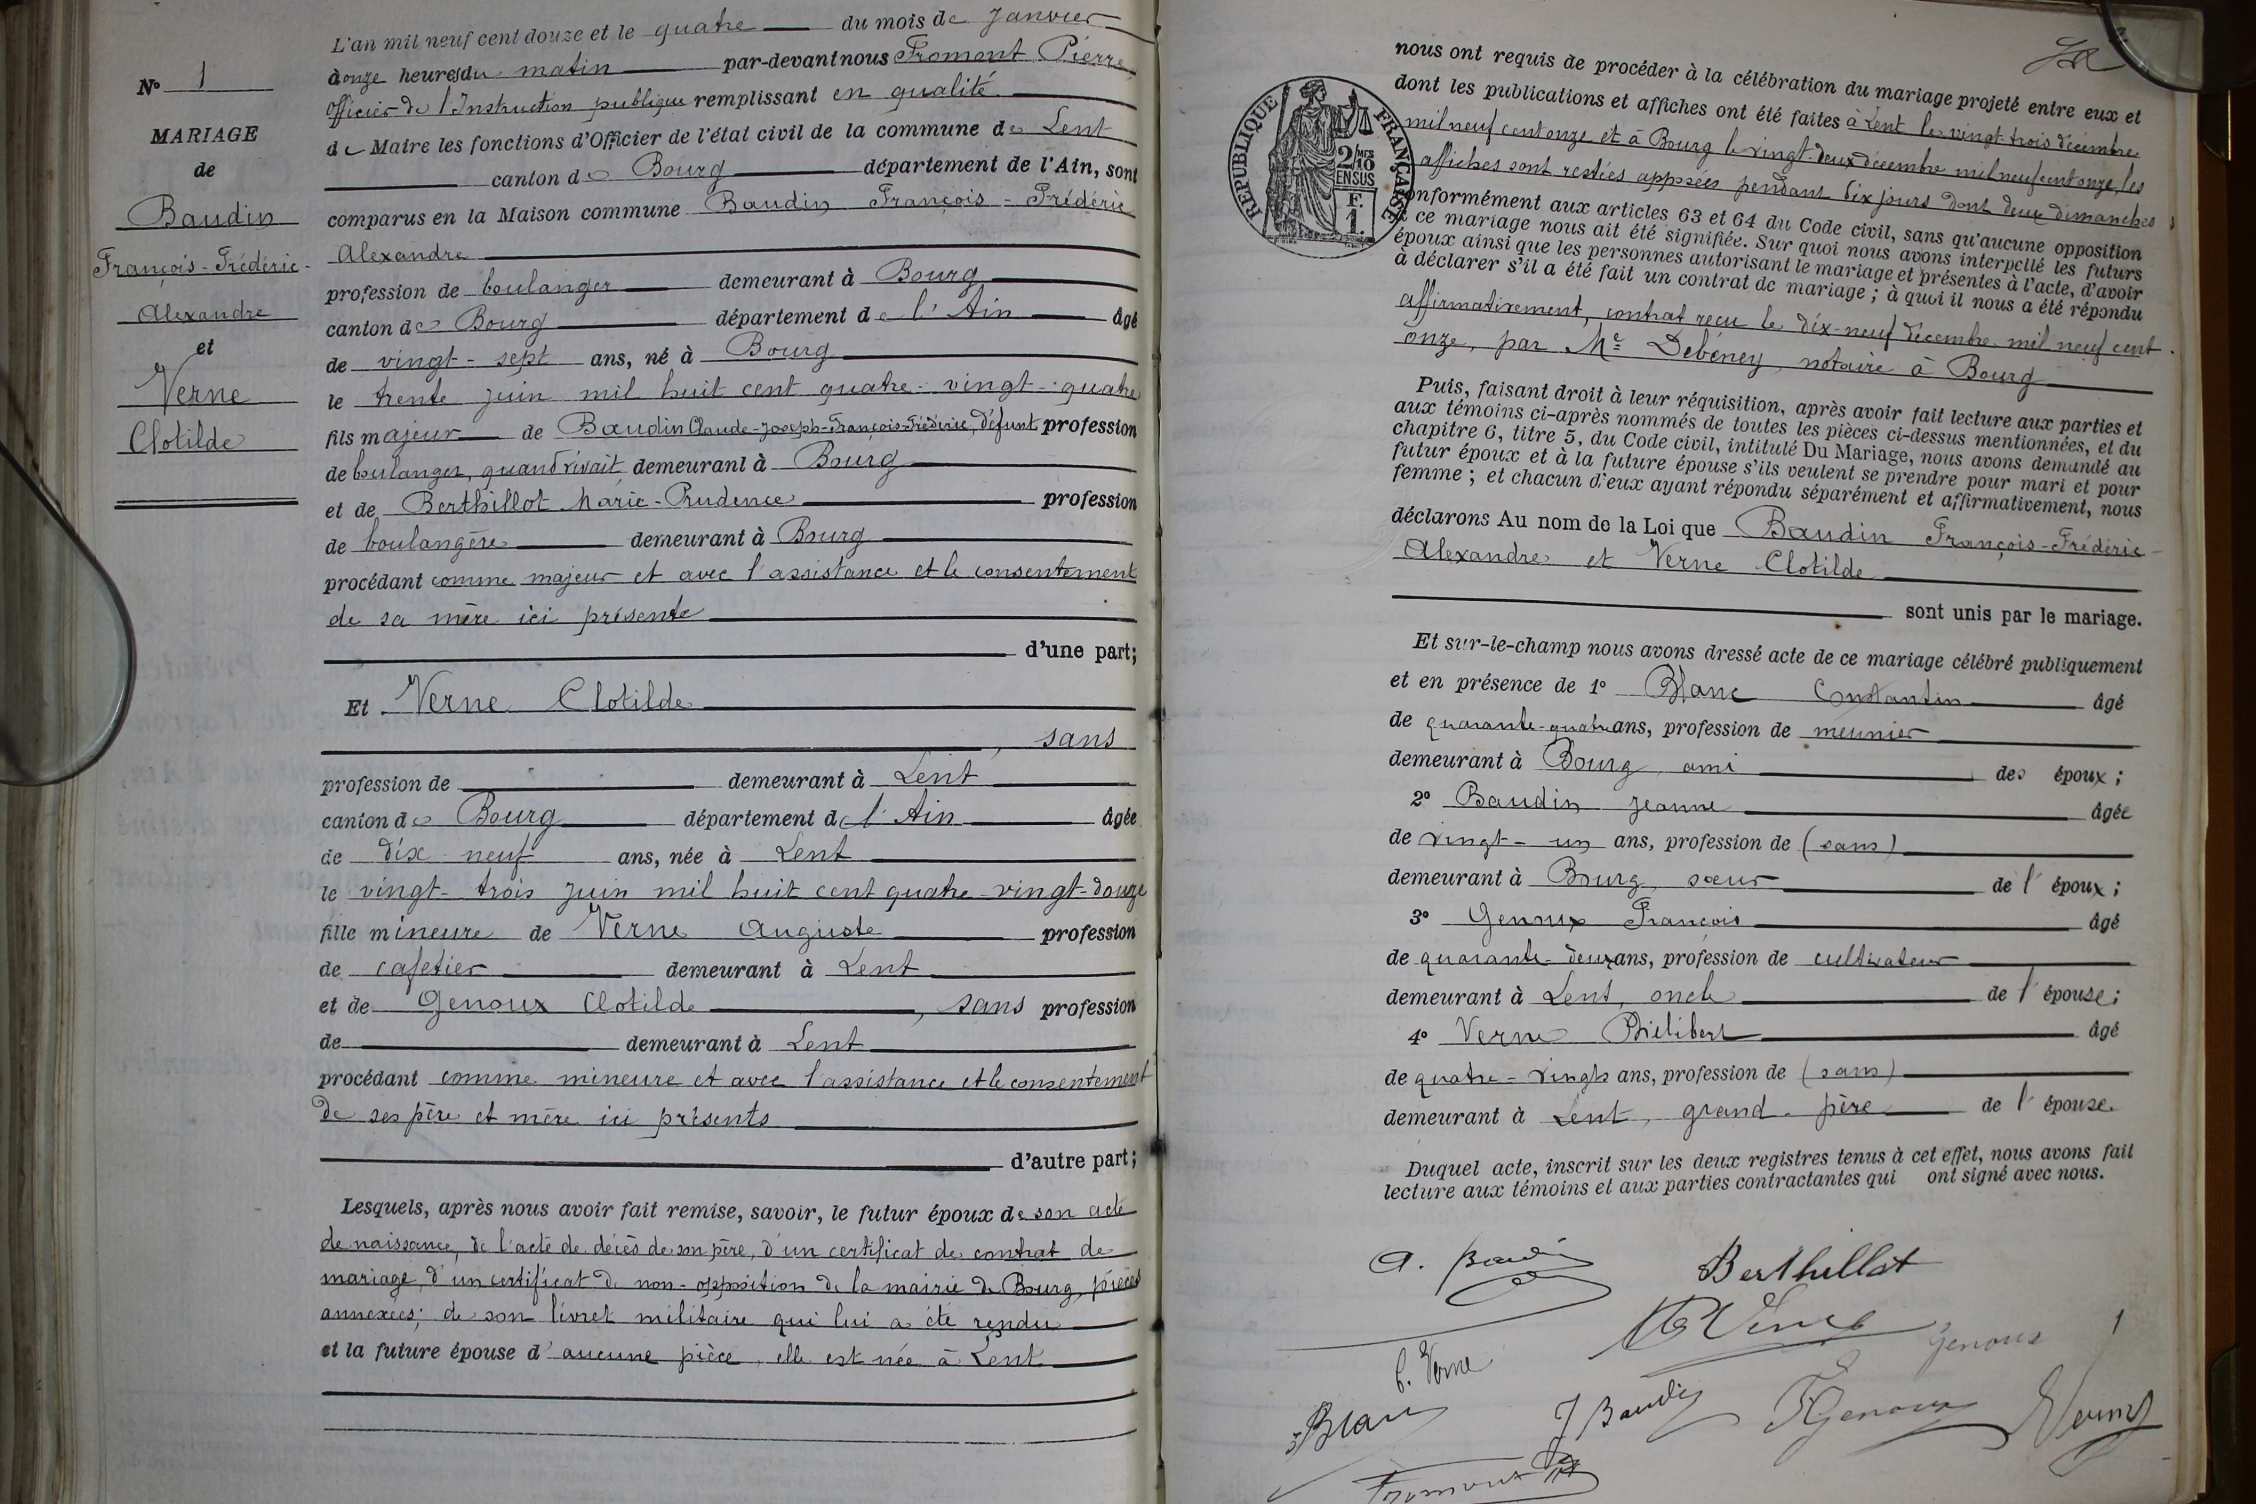 L'an mil neuf cent douze et le quatre du mois de Janvier
à onze heures du matin par-devant nous Fromont Pierre
officier de l'Instruction publique remplissant en qualité
de Maire les fonctions d'Officier de l'état civil de la commune de Lent
canton de Bourg département de l'Ain, sont
comparus en la Maison commune Baudin François-Frédéric
Alexandre
profession de boulanger demeurant à Bourg
canton de Bourg département de l'Ain âgé
de vingt-sept ans, né à Bourg
le trente juin mil huit cent quatre-vingt-quatre
fils majeur de Baudin Claude-Joseph-François-Frédéric, défunt profession
de boulanger, quand vivait demeurant à Bourg
et de Berthillot Marie-Prudence profession
de boulangère demeurant à Bourg
procédant comme majeur et avec l'assistance et le consentement
de sa mère ici présente
d'une part;
Et Verne Clotilde
, sans
profession de demeurant à Lent
canton de Bourg département de l'Ain âgée
de dix neuf ans, née à Lent
le vingt-trois juin mil huit cent quatre-vingt-douze
fille mineure de Verne Auguste profession
de cafetier demeurant à Lent
et de Genoux Clotilde, sans profession
de demeurant à Lent
procédant comme mineure et avec l'assistance et le consentement
de ses père et mère ici présents
d'autre part;
Lesquels, après nous avoir fait remise, savoir, le futur époux de son acte
de naissance, de l'acte de décès de son père, d'un certificat de contrat de
mariage, d'un certificat de non-opposition de la mairie de Bourg, pièces
annexées; de son livret militaire qui lui a été rendu
et la future épouse d'aucune pièce, elle est née à Lent
No 1
MARIAGE
de
Baudin
François-Frédéric-
Alexandre
et
Verne
Clotilde
nous ont requis de procéder à la célébration du mariage projeté entre eux et
dont les publications et affiches ont été faites à Lent le vingt-trois décembre
mil neuf cent onze et à Bourg le vingt-deux décembre mil neuf cent onze, les
affiches sont restées apposées pendant dix jours dont deux dimanches
conformément aux articles 63 et 64 du Code civil, sans qu'aucune opposition
à ce mariage nous ait été signifiée. Sur quoi nous avons interpellé les futurs
époux ainsi que les personnes autorisant le mariage et présentes à l'acte, d'avoir
à déclarer s'il a été fait un contrat de mariage; à quoi il nous a été répondu
affirmativement, contrat reçu le dix-neuf décembre mil neuf cent
onze, par Me Debeney, notaire à Bourg
Puis, faisant droit à leur réquisition, après avoir fait lecture aux parties et
aux témoins ci-après nommés de toutes les pièces ci-dessus mentionnées, et du
chapitre 6, titre 5, du Code civil, intitulé Du Mariage, nous avons demandé au
futur époux et à la future épouse s'ils veulent se prendre pour mari et pour
femme; et chacun d'eux ayant répondu séparément et affirmativement, nous
déclarons Au nom de la Loi que Baudin François-Frédéric-
Alexandre et Verne Clotilde
sont unis par le mariage.
Et sur-le-champ nous avons dressé acte de ce mariage célébré publiquement
et en présence de 1° Blanc Constantin âgé
de quarante-quatre ans, profession de meunier
demeurant à Bourg, ami des époux;
2° Baudin Jeanne âgée
de vingt-un ans, profession de (sans)
demeurant à Bourg, sœur de l'époux;
3° Genoux François âgé
de quarante-deux ans, profession de cultivateur
demeurant à Lent, oncle de l'épouse;
4° Verne Philibert âgé
de quatre-vingts ans, profession de (sans)
demeurant à Lent, grand-père de l'épouse.
Duquel acte, inscrit sur les deux registres tenus à cet effet, nous avons fait
lecture aux témoins et aux parties contractantes qui ont signé avec nous.
REPUBLIQUE FRANÇAISE
2/10MES
EN SUS
F.
1.
A. Baudin
Berthillot
Verne
Genoux
C. Verne
Blanc
J Baudin
F Genoux
Verne
Fromont